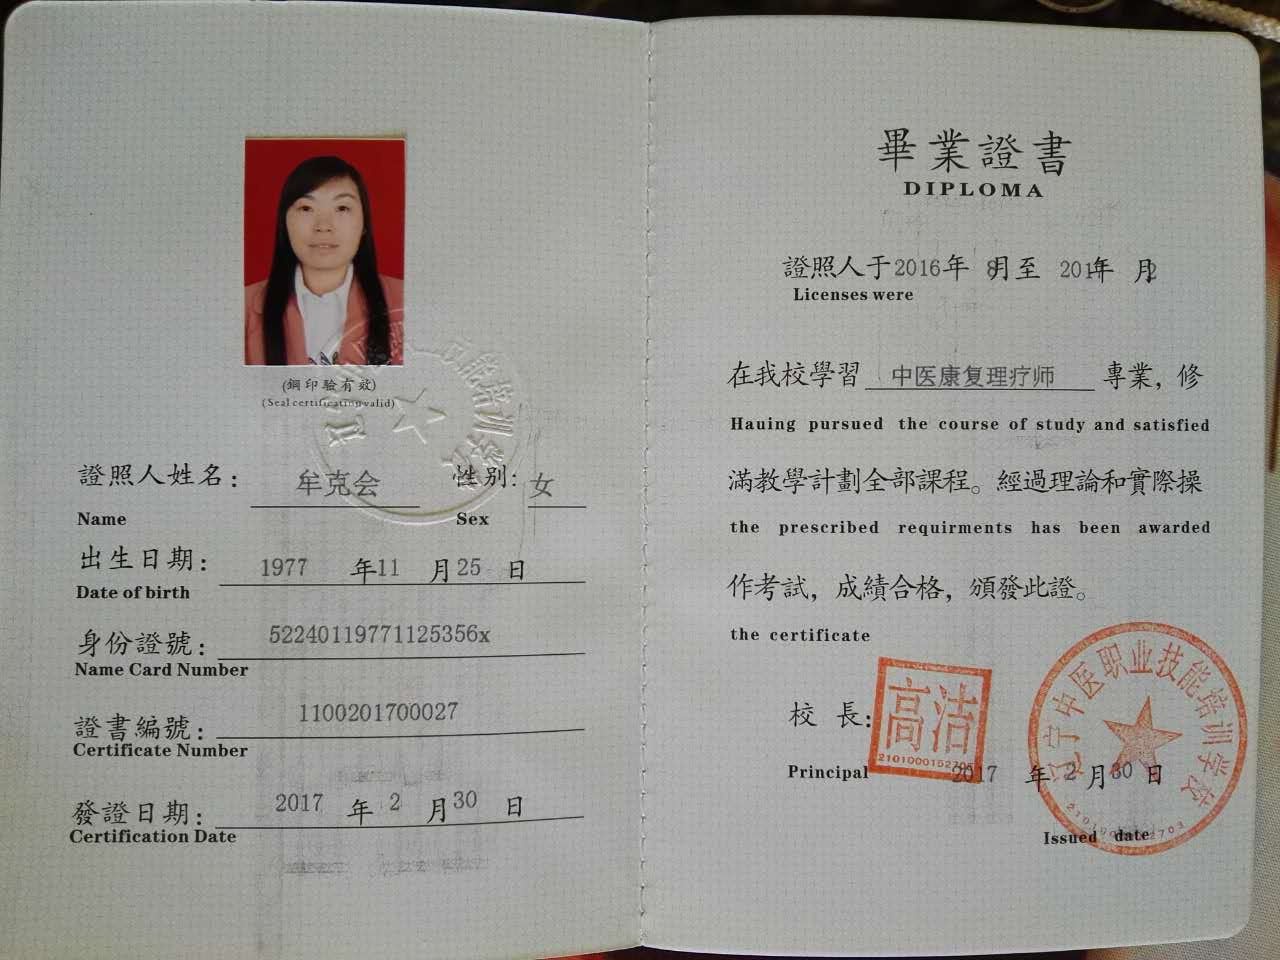 (鋼印驗有效)
(Seal certification valid)
證照人姓名： 牟克会 性别: 女
Name Sex
出生日期： 1977 年 11 月 25 日
Date of birth
身份證號： 52240119771125356x
Name Card Number
證書編號： 1100201700027
Certificate Number
發證日期： 2017 年 2 月 30 日
Certification Date
畢業證書
DIPLOMA
證照人于 2016 年 8 月至 2017 年 2 月
Licenses were
在我校學習 中医康复理疗师 專業，修
Hauing pursued the course of study and satisfied
滿教學計劃全部課程。經過理論和實際操
the prescribed requirments has been awarded
作考試，成績合格，頒發此證。
the certificate
校 長:
高洁
2101000152705
Principal
2017 年 2 月 30 日
Issued date
辽宁中医职业技能培训学校